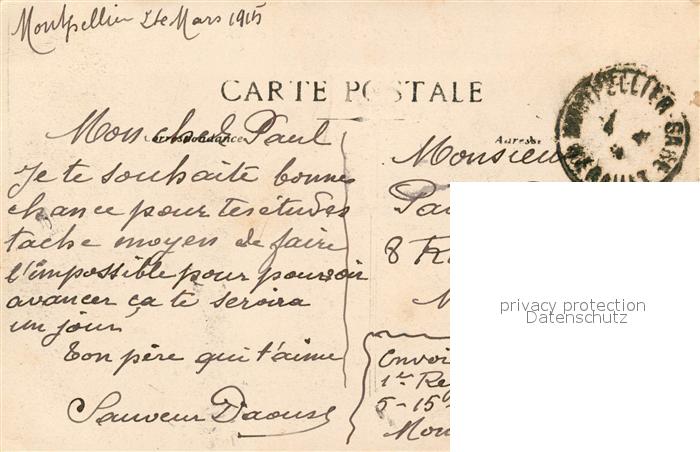 Montpellier 24 Mars 1915
CARTE POSTALE
Correspondance
Adresse
MONTPELLIER-GARE
Mon cher Paul
Je te souhaite bonne
chance pour tes études
tache moyen de faire
l'impossible pour pouvoir
avancer ça te servira
un jour
Ton père qui t'aime
Sauveur Daouse
Monsieur
Pau
8 R
Envoi
1er Re
5-15
Mon
privacy protection
Datenschutz